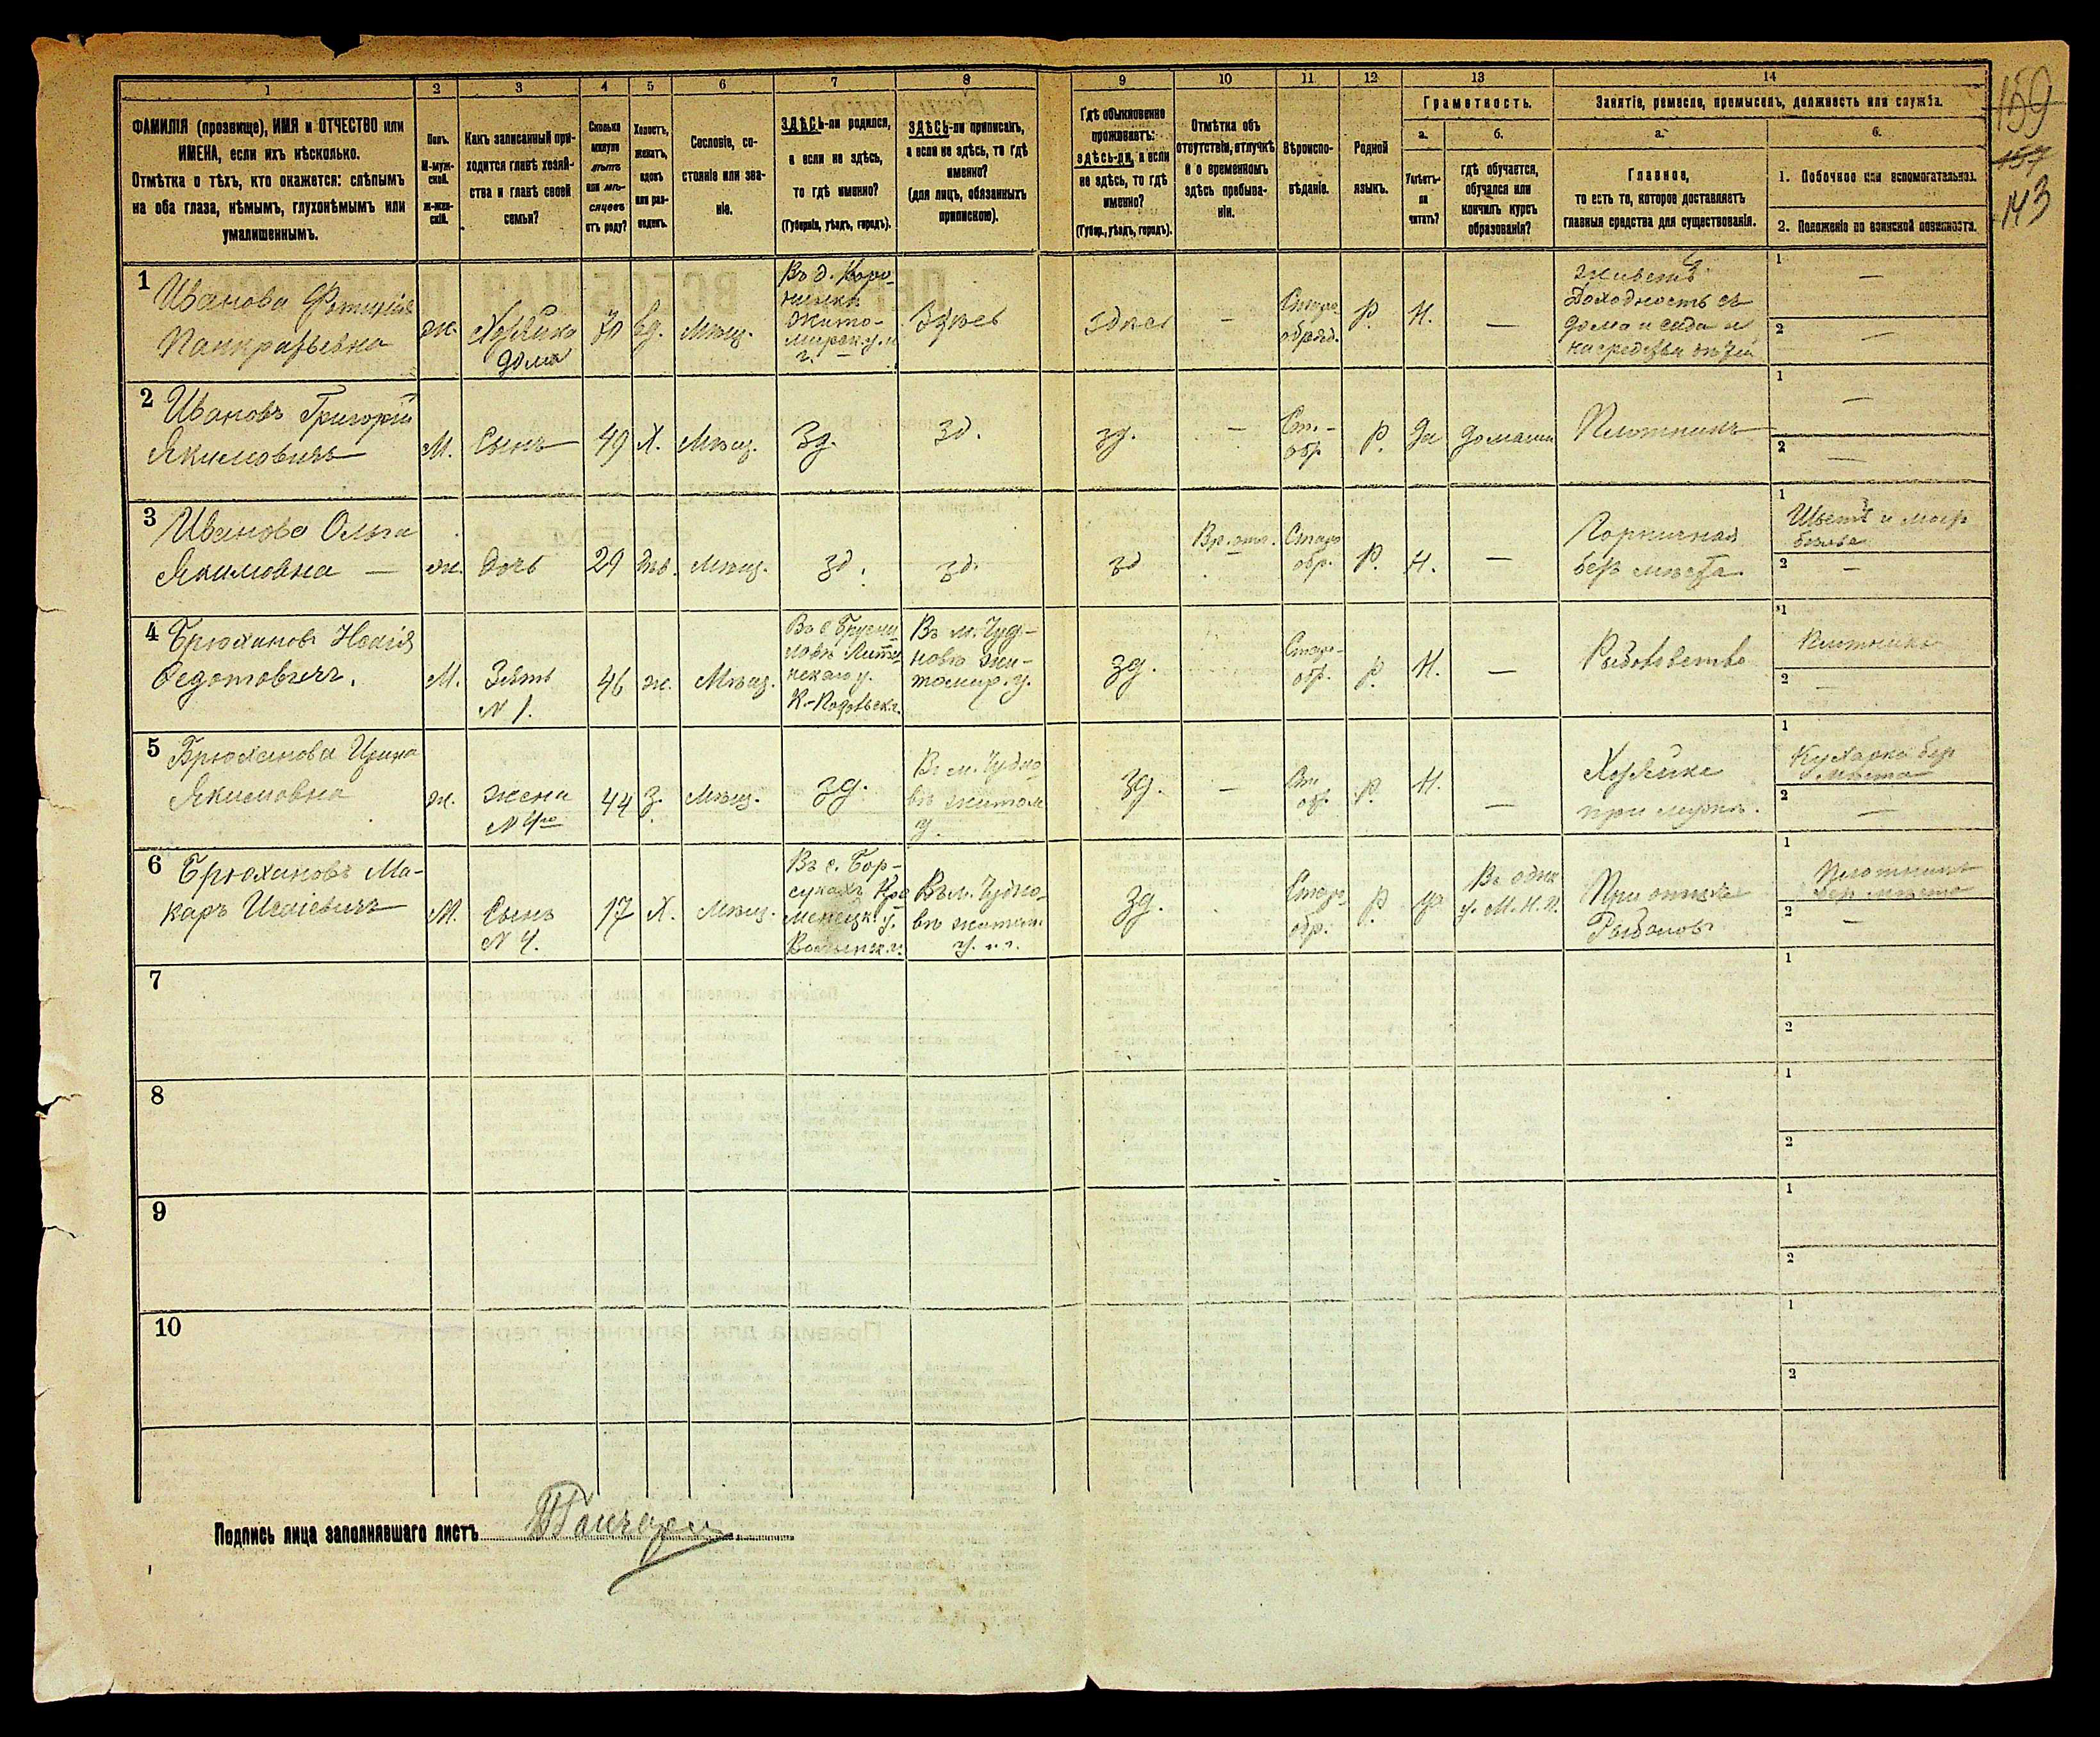 159
157
143
1 2 3 4 5 6 7 8 9 10 11 12 13 14
ФАМИЛІЯ (прозвище), ИМЯ и ОТЧЕСТВО или
ИМЕНА, если ихъ нѣсколько.
Отмѣтка о тѣхъ, кто окажется: слѣпымъ
на оба глаза, нѣмымъ, глухонѣмымъ или
умалишеннымъ.
Полъ.
М-муж-
ской.
Ж-жен-
скій.
Какъ записанный при-
ходится главѣ хозяй-
ства и главѣ своей
семьи?
Сколько
минуло
лѣтъ
или мѣ-
сяцевъ
отъ роду?
Холостъ,
женатъ,
вдовъ
или раз-
веденъ.
Сословіе, со-
стояніе или зва-
ніе.
ЗДѢСЬ-ли родился,
а если не здѣсь,
то гдѣ именно?
(Губернія, уѣздъ, городъ).
ЗДѢСЬ-ли приписанъ,
а если не здѣсь, то гдѣ
именно?
(для лицъ, обязанныхъ
припискою).
Гдѣ обыкновенно
проживаетъ:
здѣсь-ли, а если
не здѣсь, то гдѣ
именно?
(Губер., уѣздъ, городъ).
Отмѣтка объ
отсутствіи, отлучкѣ
и о временномъ
здѣсь пребыва-
ніи.
Вѣроиспо-
вѣданіе.
Родной
языкъ.
Грамотность.
а.
Умѣетъ-
ли
читать?
б.
гдѣ обучается,
обучался или
кончилъ курсъ
образованія?
Занятіе, ремесло, промыселъ, должность или служба.
а.
Главное,
то есть то, которое доставляетъ
главныя средства для существованія.
б.
1. Побочное или вспомогательное.
2. Положеніе по воинской повинности.
1
Иванова Фотинія
Панкратьевна
ж.
Хозяйка
дома
70
вд.
Мѣщ.
Въ д.
Жито-
мирск. у.
г.
Здѣсь
здѣсь
—
Старо
обряд.
Р.
Н.
—
живетъ
Доходность съ
дома и сада и
на средства
1
—
2
—
2
Ивановъ Григорій
Якимовичъ
М.
Сынъ
49
Х.
Мѣщ.
Зд.
Зд.
зд.
—
Ст.-
обр
Р.
да
домашн
Плотникъ
1
—
2
—
3
Иванова Ольга
Якимовна —
ж.
Дочь
29
дѣв.
Мѣщ.
зд.
зд.
зд
Вр. отл.
Старо
обр.
Р.
Н.
—
Горничная
безъ мѣста
1
2
—
4
Брюханов
Федотовичъ.
М.
Зять
N 1.
46
ж.
Мѣщ.
Въ с.
К.-Подольск.
Въ м. Чуд-
новѣ Жи-
томир. у.
зд.
Старо-
обр.
Р.
Н.
—
Рыболовство
1
Плотникъ
2
—
5
Брюханова Ирина
Якимовна
ж.
жена
N 4го
44
З.
Мѣщ.
зд.
Въ м. Чудно
вѣ житом
у.
зд.
—
Ст.
обр.
Р.
Н.
—
Хозяйка
при мужѣ.
1
Кухарка без
мѣста
2
—
6
Брюхановъ Ма-
каръ Исаіевичъ
М.
Сынъ
N 4.
17
Х.
Мѣщ.
Въ с. Бор-
сукахъ Кре
менецк. у.
Волынск. г.
Въ м. Чудно-
вѣ житом.
у. и г.
зд.
Старо-
обр.
Р.
да
Въ одно
у. М. Н. П.
При отцѣ
Рыболов
1
Плотникъ
без мѣста
2
—
7
1
2
8
1
2
9
1
2
10
1
2
Подпись лица заполнявшаго листъ